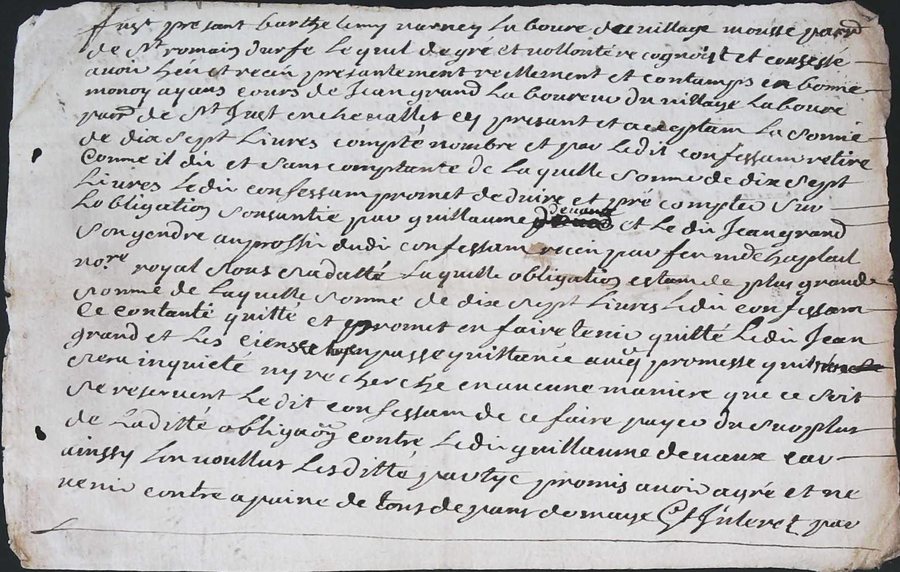 fust presant barthelemy varney laboure du village mousse parr
de St romain durfe lequel de gre et vollontere cognoist et confesse
avoir heu et receu presantement reellement et contamps en bonne
monoy ayans cours de Jean grand laboureur du village laboure
parr de St Just en chevallet cy presant et aceptam la somme
de dix sept livres compté nombre et par ledit confessam retire
come il dit et sans comptante de laquelle somme de dix sept
livres ledit confessam promet deduire et pré compter sur
lobligation consantie par guillaume devaux et ledit Jean grand
son gendre au proffit dudit confessam receu par fer me chaplad
nore royal sous sa datte laquelle obligation estam de plus grande
somme de laquelle somme de dix sept livres ledit confessam
ce contanté quitté et promet en faire tenir quitté ledit Jean
grand et les siens passe quittance aucq promesse quil
sera inquieté ny recherche en aucune maniere que ce soit
se reservent ledit confessam de ce faire payer du surplus
de laditté obligaon contre ledit guillaume devaux car
ainssy lon voullus lesditté partye promis avoir agré et ne
venir contre a paine de tous depans domage et Interet par